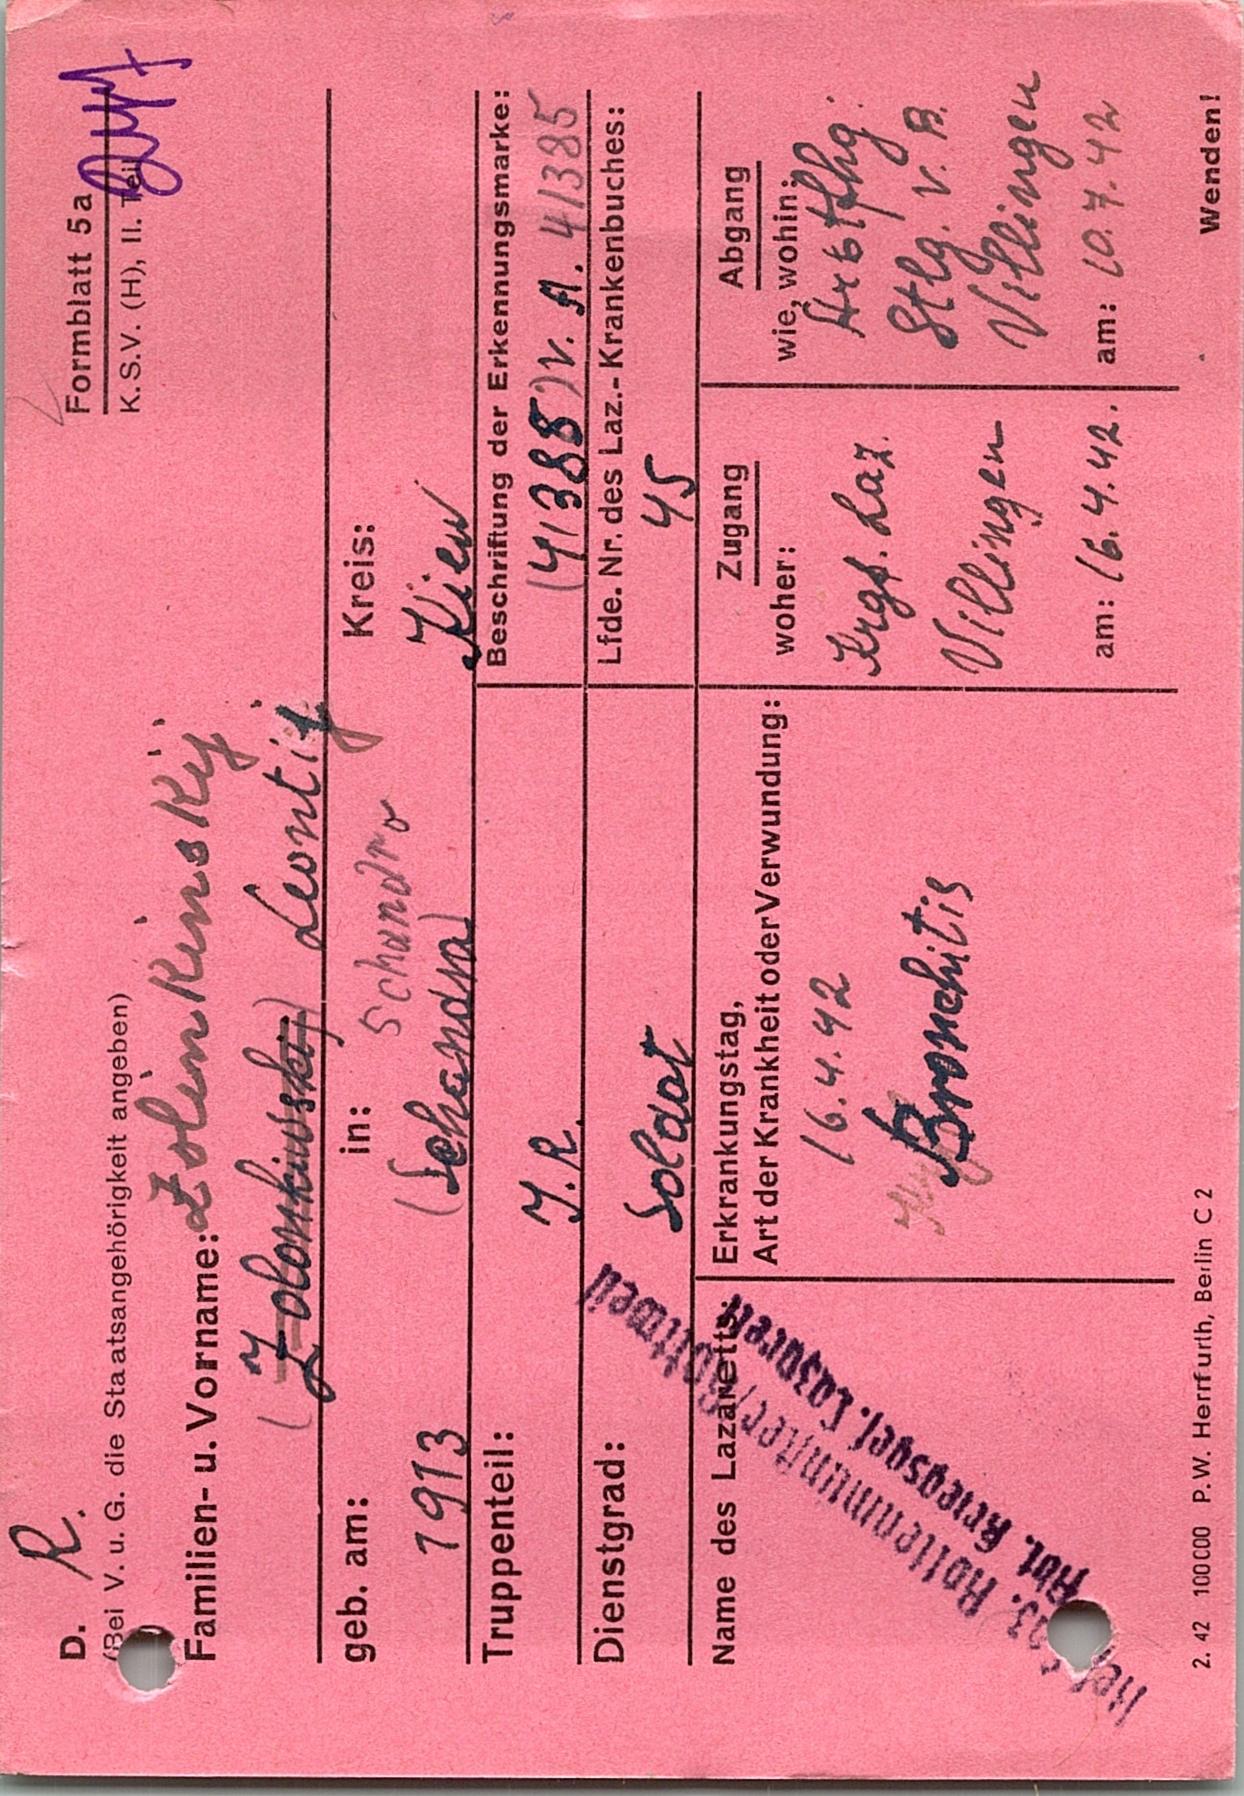 D. R.
Formblatt 5a
K.S.V. (H), II. Teil
(Bei V. u. G. die Staatsangehörigkeit angeben)
Familien- u. Vorname: Zolimkinskij
(Zolonkiwskij) Leontij
geb. am: in: Kreis:
Schandro
1913 (Schandra) Kiew
Truppenteil: J.R.
Beschriftung der Erkennungsmarke:
(41388) V. A. 41385
Dienstgrad: Soldat
Lfde. Nr. des Laz.-Krankenbuches:
45
Name des Lazaretts:
Res. Laz. Rottenmünster/Rottweil
Abt. Kriegsgef. Lazarett
Erkrankungstag,
Art der Krankheit oder Verwundung:
16.4.42
Bronchitis
Zugang
woher:
Krgf. Laz.
Villingen
am: 16.4.42.
Abgang
wie, wohin:
Stlg. V. B.
Villingen
am: 10.7.42
2. 42 100000 P.W. Herrfurth, Berlin C 2
Wenden!